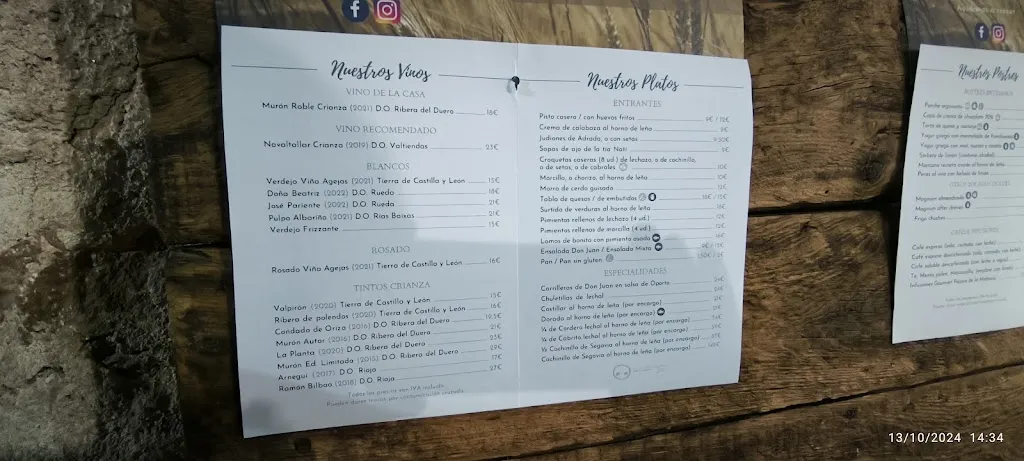 Nuestros Vinos
VINO DE LA CASA
Murón Roble Crianza (2021) D.O. Ribera del Duero 18€
VINO RECOMENDADO
Novaltaller Crianza (2019) D.O. Valtiendas 23€
BLANCOS
Verdejo Viña Agejas (2021) Tierra de Castilla y León 15€
Doña Beatriz (2022) D.O. Rueda 18€
José Pariente (2022) D.O. Rueda 21€
Pulpo Albariño (2021) D.O. Rías Baixas 21€
Verdejo Frizzante 15€
ROSADO
Rosado Viña Agejas (2021) Tierra de Castilla y León 16€
TINTOS CRIANZA
Valpirón (2020) Tierra de Castilla y León 15€
Ribera de polendos (2020) Tierra de Castilla y León 16€
Condado de Oriza (2016) D.O. Ribera del Duero 19,5€
Murón Autor (2016) D.O. Ribera del Duero 21€
La Planta (2020) D.O. Ribera del Duero 23€
Murón Ed. Limitada (2015) D.O. Ribera del Duero 29€
Arnegui (2017) D.O. Rioja 17€
Ramón Bilbao (2018) D.O. Rioja 27€
Todos los precios son IVA incluido
Nuestros Platos
ENTRANTES
Pisto casero / con huevos fritos 9€ / 12€
Crema de calabaza al horno de leña 9€
Judiones de Adrada, o con setas 9.50€
Sopas de ajo de la tía Nati 9€
Croquetas caseras (8 ud.) de lechazo, o de cochinillo,
o de setas, o de cabrales 10€
Morcilla, o chorizo, al horno de leña 10€
Morro de cerdo guisado 12€
Tabla de quesos / de embutidos 16€ / 15€
Surtido de verduras al horno de leña
Pimientos rellenos de lechazo (4 ud.) 12€
Pimientos rellenos de morcilla (4 ud.) 12€
Lomos de bonito con pimiento asado 16€
Ensalada Don Juan / Ensalada Mixta
Pan / Pan sin gluten 1,50€ / 2€
ESPECIALIDADES
Carrilleras de Don Juan en salsa de Oporto
Chuletillas de lechal
Costillar al horno de leña (por encargo)
Dorada al horno de leña (por encargo)
¼ de Cordero lechal al horno de leña (por encargo)
¼ de Cabrito lechal al horno de leña (por encargo)
½ Cochinillo de Segovia al horno de leña (por encargo)
Cochinillo de Segovia al horno de leña (por encargo)
Nuestros Postres
Ponche segoviano
Copa de crema de chocolate 70%
Tarta de queso y
Yogur griego con mermelada de frambuesa
Yogur griego con miel, nueces y
Sorbete de limón (contiene alcohol)
Manzana asada al horno de leña
Magnum almendrado
Magnum after dinner
Frigo
Café expreso (solo, cortado, con leche)
13/10/2024 14:34